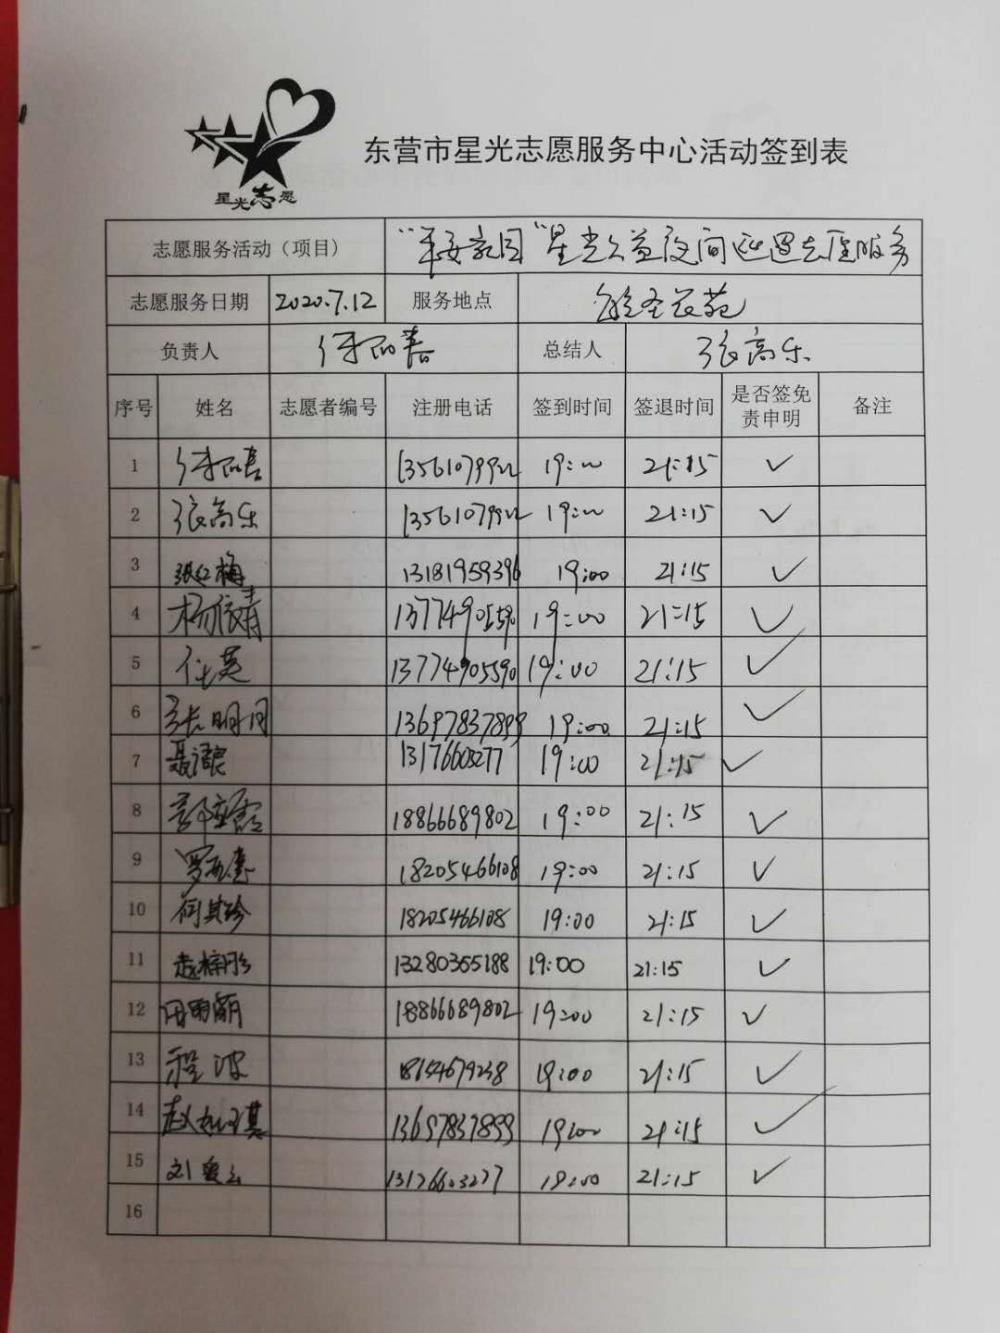 星光志愿
东营市星光志愿服务中心活动签到表
志愿服务活动（项目） “平安家园”星光公益夜间巡逻志愿服务
志愿服务日期 2020.7.12 服务地点
负责人 总结人 张高乐
序号 姓名 志愿者编号 注册电话 签到时间 签退时间 是否签免责申明 备注
1 19:00 21:15 ✓
2 张高乐 19:00 21:15 ✓
3 张红梅 13181959396 19:00 21:15 ✓
4 杨俊青 13774905590 19:00 21:15 ✓
5 任英 13774905590 19:00 21:15 ✓
6 张明月 13697837899 19:00 21:15 ✓
7 19:00 21:15 ✓
8 18866689802 19:00 21:15 ✓
9 18205466108 19:00 21:15 ✓
10 何其珍 18205466108 19:00 21:15 ✓
11 13280365188 19:00 21:15 ✓
12 18866689802 19:00 21:15 ✓
13 程波 19:00 21:15 ✓
14 13697837899 19:00 21:15 ✓
15 刘爱云 19:00 21:15 ✓
16